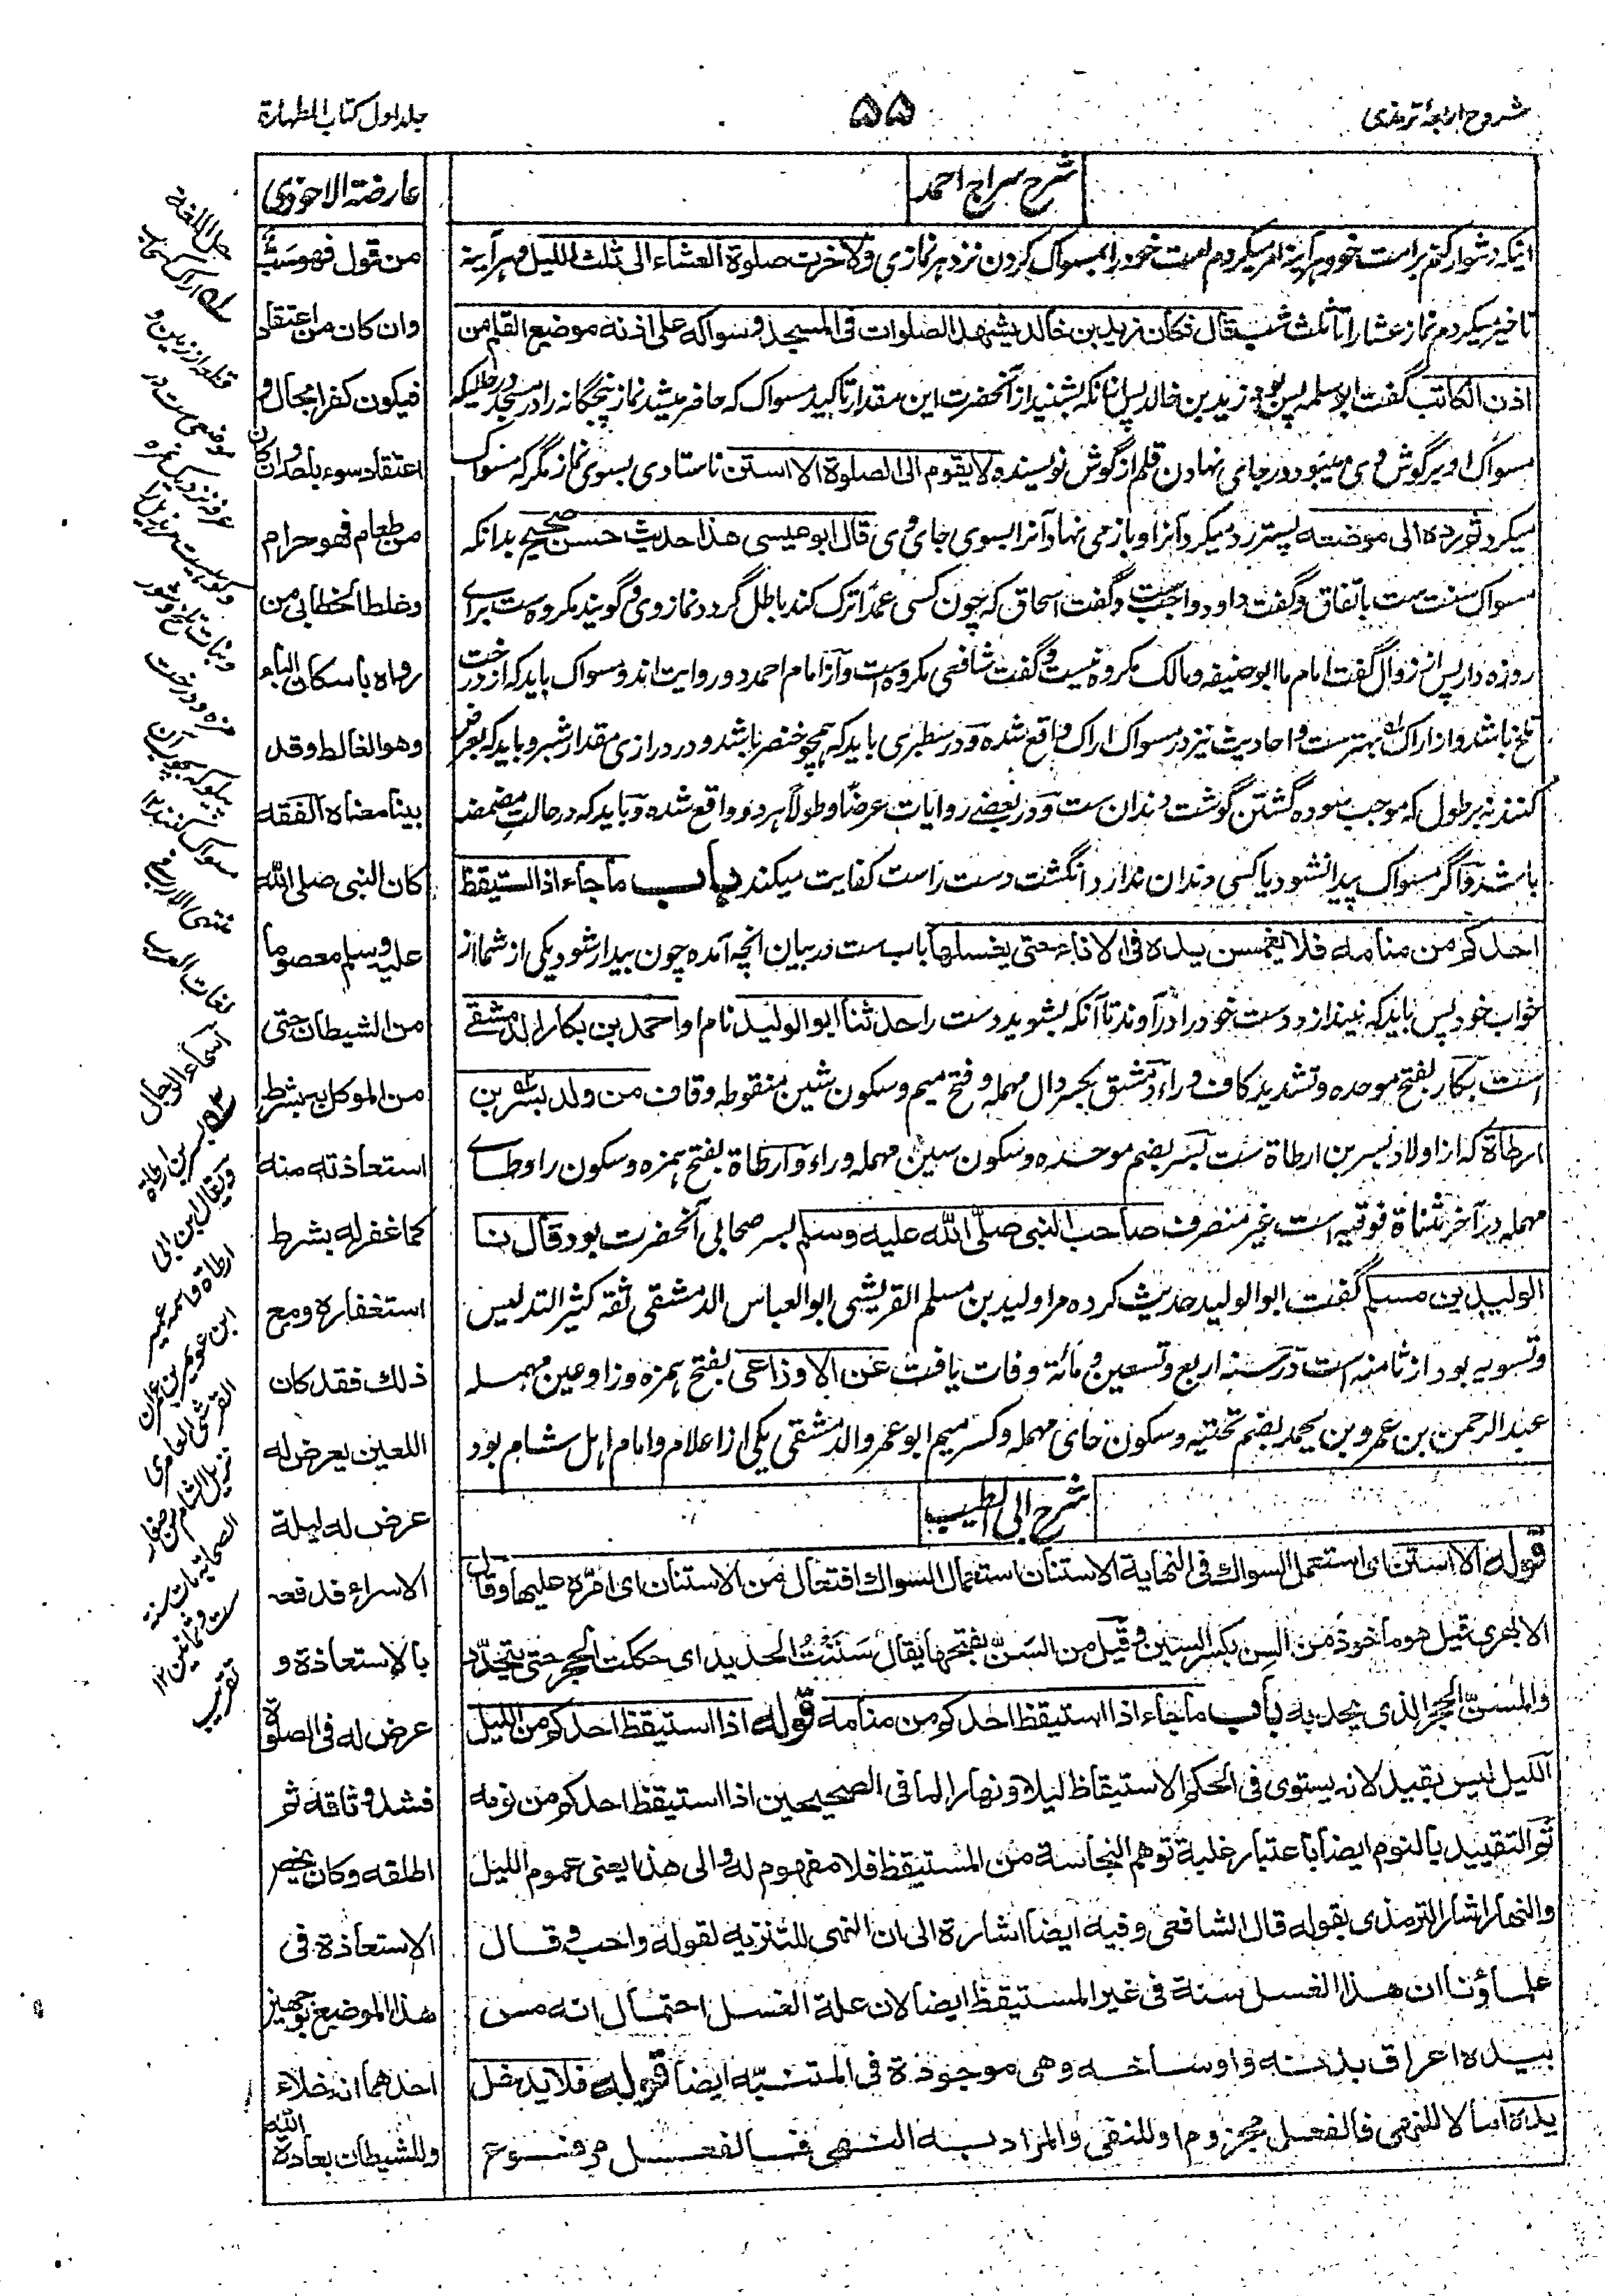 شروح اربعهٔ ترمذی
۵۵
جلد اول کتاب الطهارة
شرح سراج احمد
اینکه دشوار کنم بر امت خود هر آینه امر میکردم امت خود را بمسواک کردن نزد هر نمازی ولاخرت صلوة العشاء الی ثلث اللیل و هر آینه
تاخیر میکردم نماز عشا را تا ثلث شب قال فکان زید بن خالد یشهد الصلوات فی المسجد و سواکه علی اذنه موضع القلم من
اذن الکاتب گفت ابو سلمه پس بود زید بن خالد پس ازانکه بشنید از آنحضرت این مقدار تاکید مسواک که حاضر میشد نماز پنجگانه را در مسجد در حالیکه
مسواک او بر گوش وی میبود در جای نهادن قلم از گوش نویسنده ولا یقوم الی الصلوة الا استن نا ستادی بسوی نماز مگر که مسواک
میکرد ثم رده الی موضعه پستر رد میکرد آنرا و باز می نهاد آنرا بسوی جای وی قال ابو عیسی هذا حدیث حسن صحیح بدانکه
مسواک سنت ست باتفاق و گفت داود واجب ست و گفت اسحاق که چون کسی عمداً ترک کند باطل گردد نماز وی و گویند مکروه ست برای
روزه دار پس از زوال گفت امام ما ابو حنیفه و مالک مکروه نیست و گفت شافعی مکروه ست و از امام احمد دو روایت اند و مسواک باید که از درخت
تلخ باشد و از اراک بهتر ست و احادیث نیز در مسواک اراک واقع شده و در سطبری باید که همچو خنصر باشد و در درازی مقدار شبر و باید که بعرض
کنند نه بر طول که موجب سوده گشتن گوشت دندان ست و در بعضے روایات عرضا و طولاً هر دو واقع شده و باید که در حالت مضمضه
باشد و اگر مسواک پیدا نشود یا کسی دندان ندارد انگشت دست راست کفایت میکند باب ما جاء اذا استیقظ
احدکم من منامه فلا یغمسن یده فی الاناء حتی یغسلها باب ست در بیان انچه آمده چون بیدار شود یکی از شما از
خواب خود پس باید که نیندازد دست خود را در آوند تا آنکه بشوید دست را حدثنا ابو الولید نام او احمد بن بکار الدمشقے
است بکار بفتح موحده و تشدید کاف و راء دمشق بکسر دال مهمله و فتح میم و سکون شین منقوطه و قاف من ولد بسر بن
ارطاة که از اولاد بسر بن ارطاة ست بسر بضم موحده و سکون سین مهمله و راء و ارطاة بفتح همزه و سکون را و طاے
مهمله در آخر مثناة فوقیه است غیر منصرف صاحب النبی صلی الله علیه وسلم بسر صحابی آنحضرت بود قال نا
الولید بن مسلم گفت ابو الولید حدیث کرده مرا ولید بن مسلم القریشی ابو العباس الدمشقی ثقة کثیر التدلیس
و تسویه بود از ثامنه است در سنه اربع و تسعین و مائة وفات یافت عن الاوزاعی بفتح همزه و زا و عین مهمله
عبد الرحمن بن عمرو بن یحمد بضم تحتیه و سکون حای مهمله و کسر میم ابو عمرو الدمشقی یکی از اعلام و امام اهل شام بود
شرح ابی الطیب
قوله الا استن ای استعمل السواك فی النهایة الاستنان استعمال السواك افتعال من الاسنان ای امرّه علیها وقال
الابهری قیل هو ماخوذ من السن بکسر السین وقیل من السَنّ بفتحها یقال سَنَنْتُ الحدید ای حککت الحجر حتی یتحدّد
والمسنّ الحجر الذی یحد به باب ما جاء اذا استیقظ احدکم من منامه قوله اذا استیقظ احدکم من اللیل
اللیل لیس بقید لانه یستوی فی الحکم الاستیقاظ لیلا ونهارا لما فی الصحیحین اذا استیقظ احدکم من نومه
ثم التقیید بالنوم ایضا باعتبار غلبة توهم النجاسة من المستیقظ فلا مفهوم له والی هذا یعنی عموم اللیل
والنهار اشار الترمذی بقوله قال الشافعی وفیه ایضا اشارة الی ان النهی للتنزیه لقوله واحب وقال
علماؤنا ان هذا الغسل سنة فی غیر المستیقظ ایضا لان علة الغسل احتمال انه مس
بیده اعراق بدنه واوساخه وهی موجودة فی المتنبّه ایضا قوله فلا یدخل
یده اما لا للنهی فالفعل مجزوم او للنفی والمراد به النهی فالفعل مرفوع
عارضة الاحوذی
من قول فهو سب
وان کان من اعتقاد
فیکون کفرا بحال و
اعتقاد سوء بلصد وان کان
من طعام فهو حرام
وغلط الخطابی من
رواه باسکان الباء
وهو الغالط وقد
بینا معناه الفقه
کان النبی صلی الله
علیه وسلم معصوما
من الشیطان حتی
من الموکل به بشرط
استعاذته منه
کما غفر له بشرط
استغفاره ومع
ذلك فقد کان
اللعین یعرض له
عرض له لیلة
الاسراء فدفعه
بالاستعاذة و
عرض له فی الصلوة
فشد وثاقه ثم
اطلقه وکان یخص
الاستعاذة فی
هذا الموضع بوجهین
احدهما انه خلاء
وللشیطان بعادة الله
حل اللغة
منتهی الارب فی
لغات العرب
اسماء الرجال
بسر بن ارطاة
ویقال ابن ابی
ارطاة واسمه عمیر
ابن عویمر بن عمران
القرشی العامری
نزیل الشام من صغار
الصحابة مات سنة
ست وثمانین ۱۲
تقریب